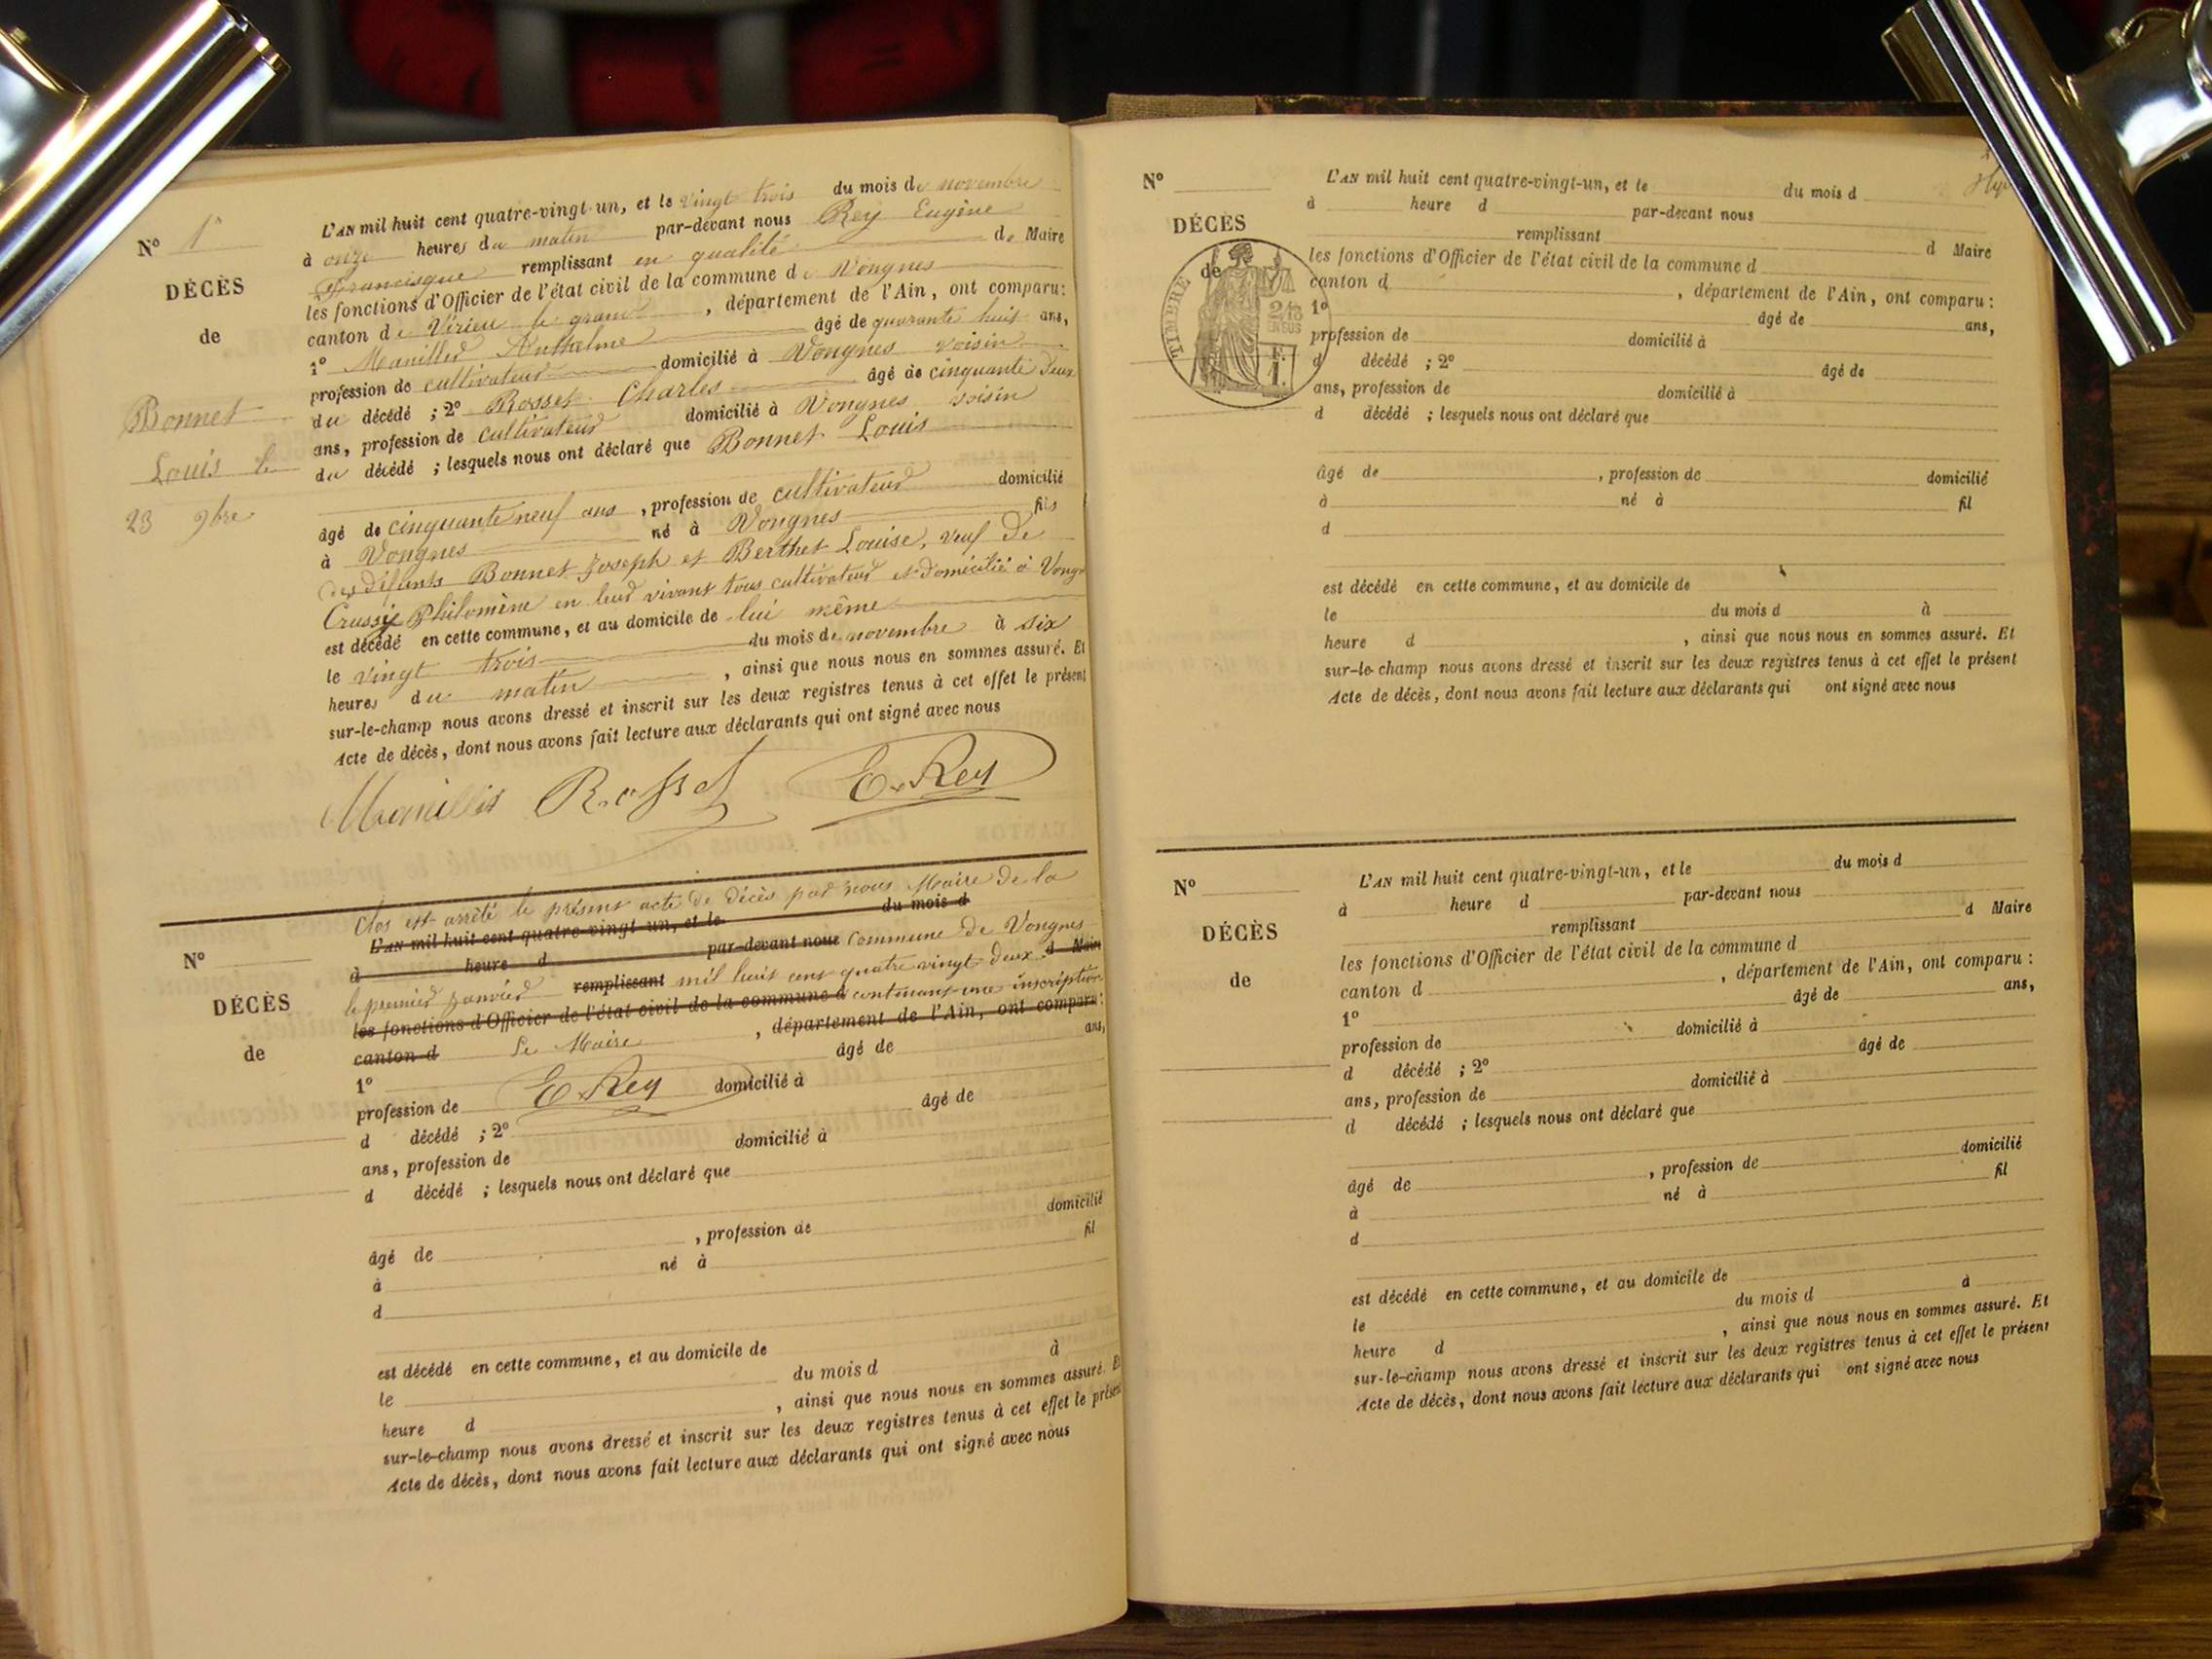 N° 1
DÉCÈS
de
Bonnet
Louis le
23 9bre
L'AN mil huit cent quatre-vingt-un, et le vingt trois du mois de novembre
à onze heures du matin par-devant nous Rey Eugène
Francisque remplissant en qualité de Maire
les fonctions d'Officier de l'état civil de la commune de Vongnes
canton de Virieu le grand, département de l'Ain, ont comparu:
1° Manillier Anthelme âgé de quarante huit ans,
profession de cultivateur domicilié à Vongnes voisin
du décédé ; 2° Rosset Charles âgé de cinquante deux
ans, profession de cultivateur domicilié à Vongnes voisin
du décédé ; lesquels nous ont déclaré que Bonnet Louis
âgé de cinquante neuf ans, profession de cultivateur domicilié
à Vongnes né à Vongnes fils
des défunts Bonnet Joseph et Berthet Louise, veuf de
Crussy Philomène en leur vivant tous cultivateur et domicilié à Vongn
est décédé en cette commune, et au domicile de lui même
le vingt trois du mois de novembre à six
heures du matin, ainsi que nous nous en sommes assuré. Et
sur-le-champ nous avons dressé et inscrit sur les deux registres tenus à cet effet le présent
Acte de décès, dont nous avons fait lecture aux déclarants qui ont signé avec nous
Rosset E. Rey
Clos et arrêté le présent acte de décès par nous Maire de la
N°
DÉCÈS
de
L'AN mil huit cent quatre-vingt-un, et le du mois d
à heure d par-devant nous Commune de Vongnes
le premier janvier remplissant mil huit cent quatre vingt deux d Maire
les fonctions d'Officier de l'état civil de la commune d contenant une inscription
canton d Le Maire, département de l'Ain, ont comparu:
1° âgé de ans,
profession de E. Rey domicilié à
d décédé ; 2° âgé de
ans, profession de domicilié à
d décédé ; lesquels nous ont déclaré que
âgé de , profession de domicilié
à né à fil
d
est décédé en cette commune, et au domicile de
le du mois d à
heure d , ainsi que nous nous en sommes assuré. E
sur-le-champ nous avons dressé et inscrit sur les deux registres tenus à cet effet le présen
Acte de décès, dont nous avons fait lecture aux déclarants qui ont signé avec nous
N°
DÉCÈS
de
TIMBRE
L'AN mil huit cent quatre-vingt-un, et le du mois d
à heure d par-devant nous
remplissant d Maire
les fonctions d'Officier de l'état civil de la commune d
canton d , département de l'Ain, ont comparu :
1° âgé de ans,
profession de domicilié à
d décédé ; 2° âgé de
ans, profession de domicilié à
d décédé ; lesquels nous ont déclaré que
âgé de , profession de domicilié
à né à fil
d
est décédé en cette commune, et au domicile de
le du mois d à
heure d , ainsi que nous nous en sommes assuré. Et
sur-le-champ nous avons dressé et inscrit sur les deux registres tenus à cet effet le présent
Acte de décès, dont nous avons fait lecture aux déclarants qui ont signé avec nous
N°
DÉCÈS
de
L'AN mil huit cent quatre-vingt-un, et le du mois d
à heure d par-devant nous
remplissant d Maire
les fonctions d'Officier de l'état civil de la commune d
canton d , département de l'Ain, ont comparu :
1° âgé de ans,
profession de domicilié à
d décédé ; 2° âgé de
ans, profession de domicilié à
d décédé ; lesquels nous ont déclaré que
âgé de , profession de domicilié
à né à fil
d
est décédé en cette commune, et au domicile de
le du mois d à
heure d , ainsi que nous nous en sommes assuré. Et
sur-le-champ nous avons dressé et inscrit sur les deux registres tenus à cet effet le présent
Acte de décès, dont nous avons fait lecture aux déclarants qui ont signé avec nous